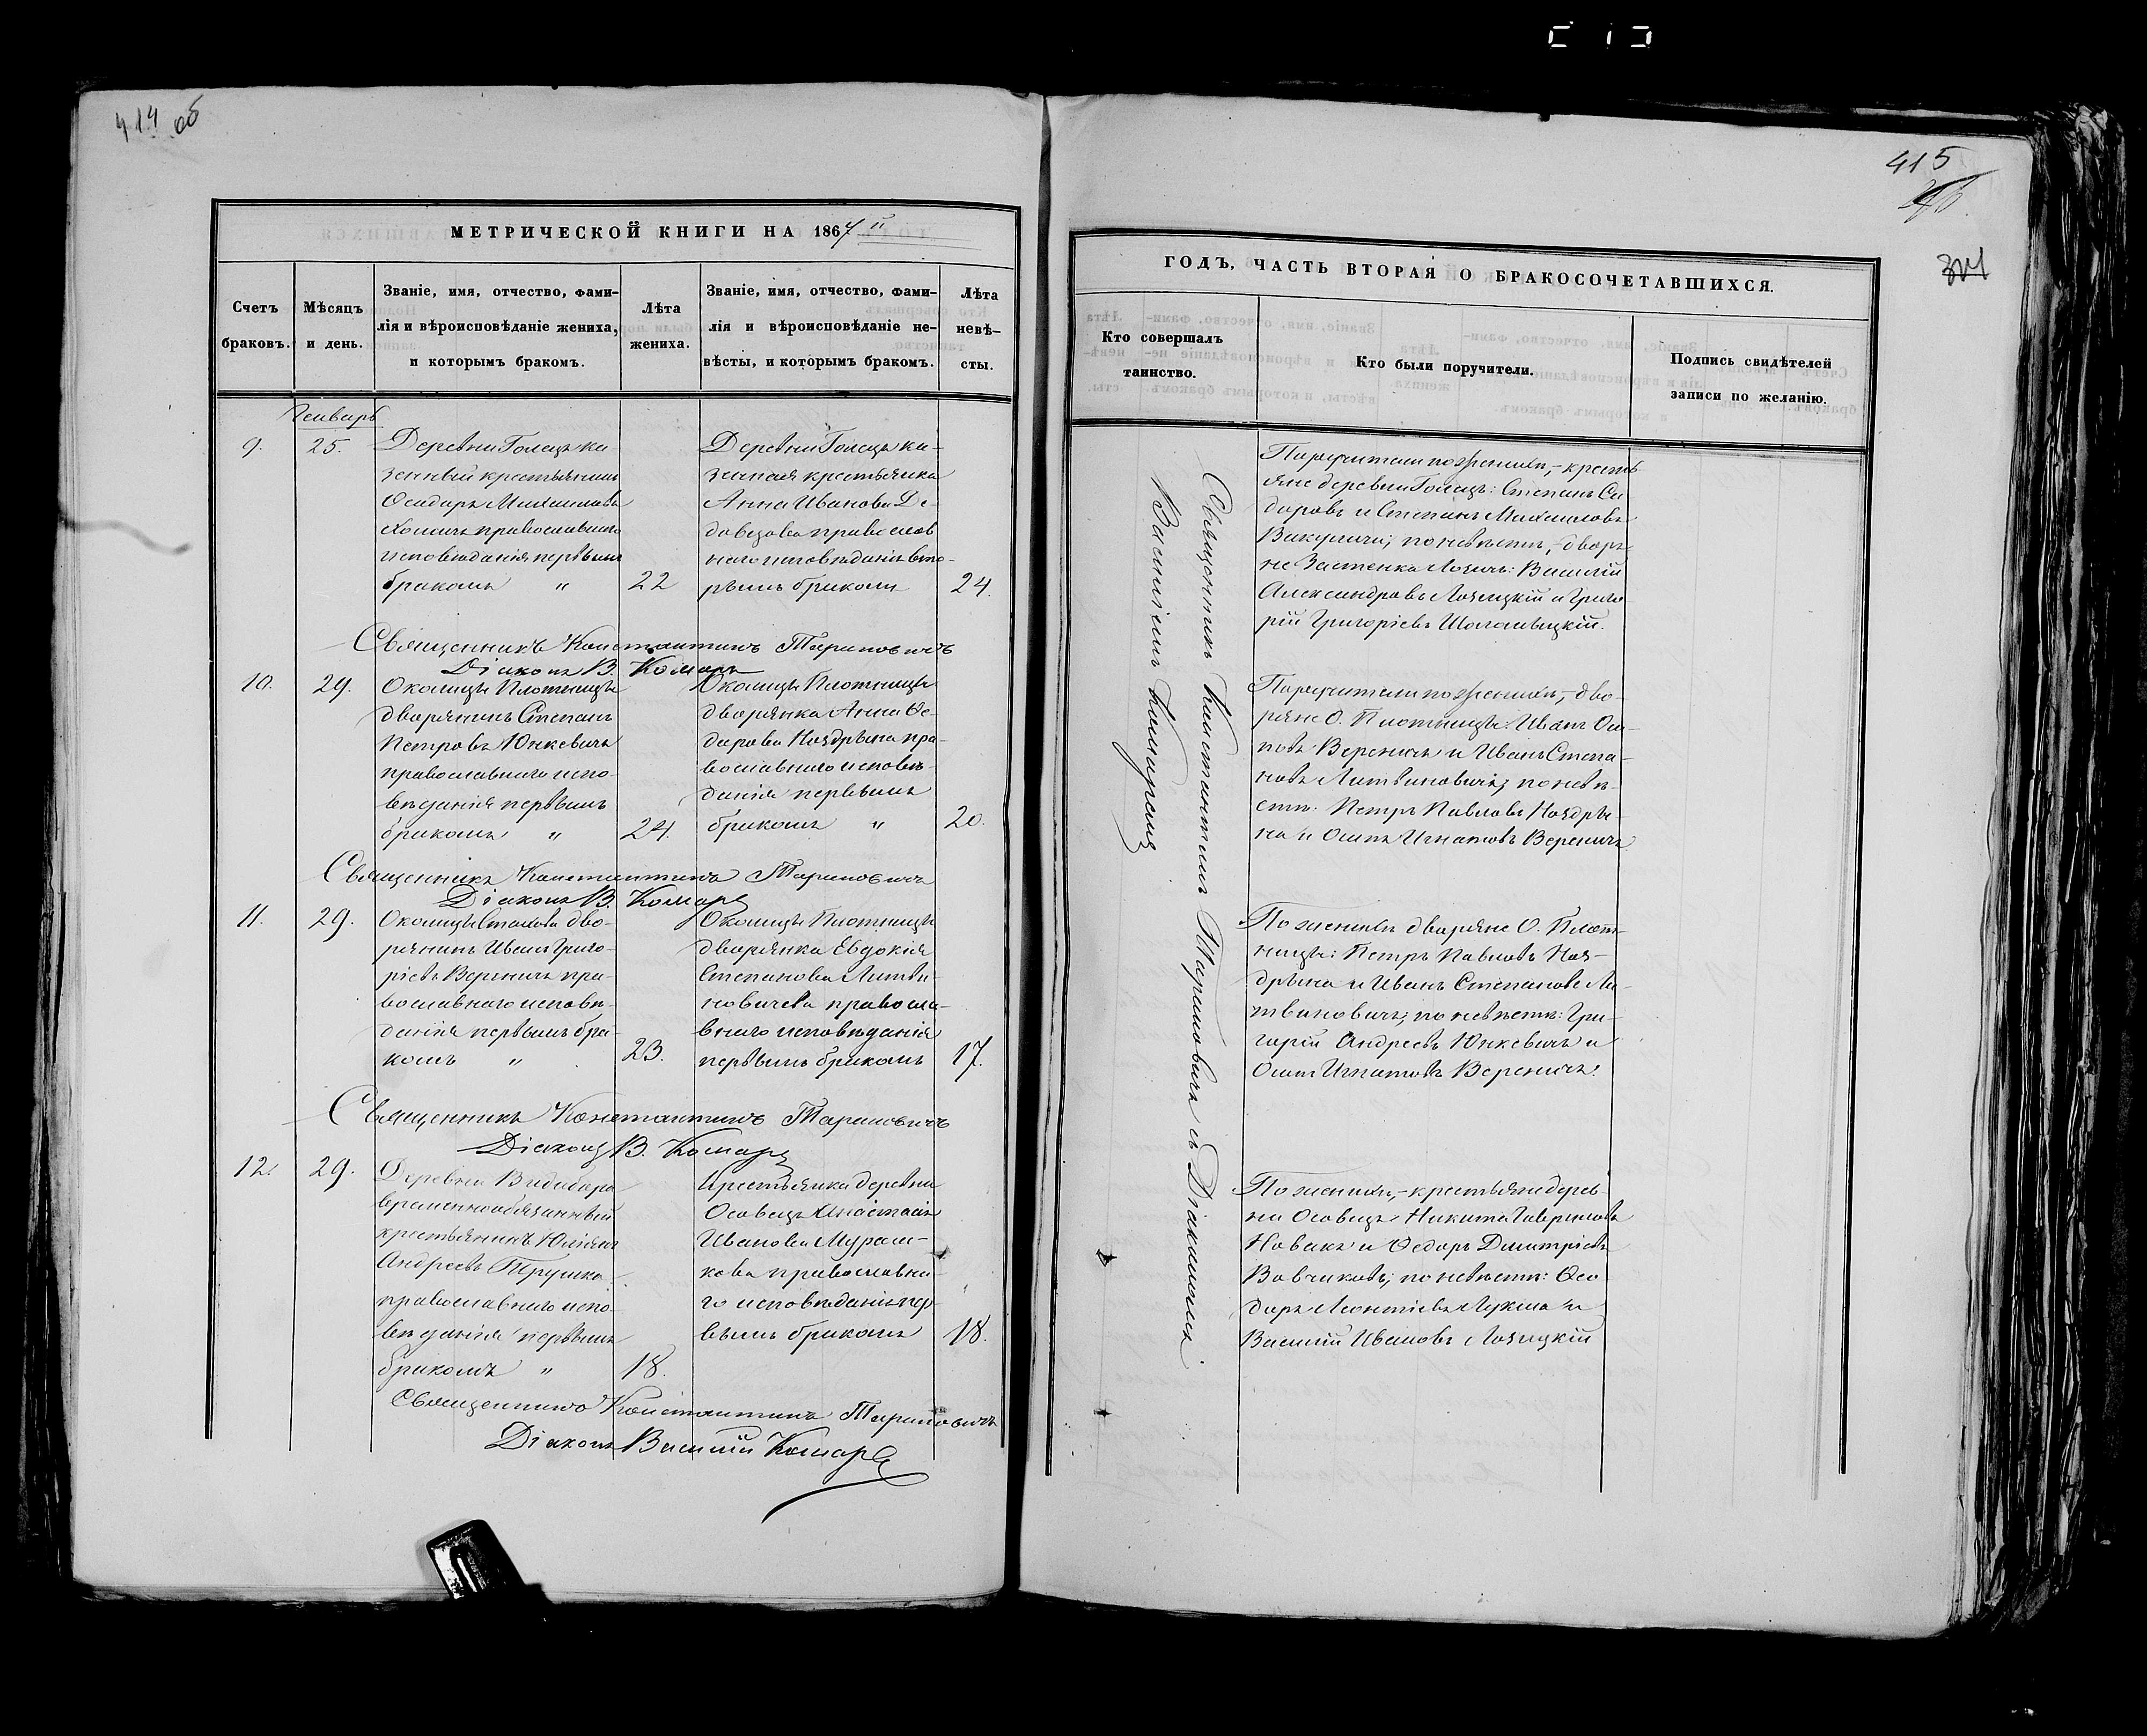 414 об
МЕТРИЧЕСКОЙ КНИГИ НА 1867
Счетъ браковъ.
Мѣсяцъ и день.
Званіе, имя, отчество, фами-
лія и вѣроисповѣданіе жениха,
и которымъ бракомъ.
Лѣта жениха.
Званіе, имя, отчество, фами-
лія и вѣроисповѣданіе не-
вѣсты, и которымъ бракомъ.
Лѣта невѣ-
сты.
Январь
9.
25.
Деревни Голецъ ка
зенный крестьянинъ
Михаиловъ
Хомичъ православнаго
исповѣданія первымъ
бракомъ "
22
Деревни Голецъ ка-
зенная крестьянка
Анна Иванова Де-
довцова православ
наго исповѣданія вто-
рымъ бракомъ
24.
Священникъ Константинъ Тариновичъ
Діаконъ В. Комаръ
10.
29.
Околицы Плотницы
дворянинъ Степанъ
Петровъ Юнкевичъ
православнаго испо-
вѣданія первымъ
бракомъ "
24.
Околицы Плотницы
дворянка Анна Ѳе-
дорова Ноздрына пра-
вославнаго исповѣ-
данія первымъ
бракомъ "
20.
Священникъ Константинъ Тариновичъ
Діаконъ В. Комаръ
11.
29.
Околицы Стахова дво-
рянинъ Иванъ Григо-
рьевъ Вереничъ пра-
вославнаго исповѣ-
данія первымъ бра-
комъ "
23.
Околицы Плотницы
дворянка Евдокія
Степанова Литви-
новичева правосла-
внаго исповѣданія
первымъ бракомъ
17.
Священникъ Константинъ Тариновичъ
Діаконъ В. Комаръ
12.
29.
Деревни Видибора
временнообязанный
крестьянинъ Юліянъ
Андреевъ Трушко
православнаго испо-
вѣданія первымъ
бракомъ "
18.
Крестьянка деревни
Осовецъ Анастасія
Иванова Мураш-
кова православна-
го исповѣданія пер-
вымъ бракомъ
18.
Священникъ Константинъ Тариновичъ
Діаконъ Василій Комаръ
415
ГОДЪ, ЧАСТЬ ВТОРАЯ О БРАКОСОЧЕТАВШИХСЯ.
Кто совершалъ
таинство.
Кто были поручители.
Подпись свидѣтелей
записи по желанію.
Священникъ Константинъ Тариновичъ съ Діакономъ
Василіемъ Комаремъ
Поручители по женихѣ,- кресть
яне деревни Голецъ: Степанъ Си
доровъ и Степанъ Михаиловъ
Викуличи; по невѣстѣ,- дворя
не Застенка Лозичъ: Василій
Александровъ Лозицкій и Григо
рій Григоріевъ Шоломыцкій.
Поручители по женихѣ,- дво-
ряне О. Плотницы: Иванъ Оси
повъ Вереничъ и Иванъ Степа-
новъ Литвиновичъ; по невѣ-
стѣ: Петръ Павловъ Ноздры-
на и Осипъ Игнатовъ Вереничъ
По женихѣ дворяне О. Плот-
ницы: Петръ Павловъ Ноз-
дрына и Иванъ Степановъ Ли-
твиновичъ; по невѣстѣ: Гри-
горій Андреевъ Юнкевичъ и
Осипъ Игнатовъ Вереничъ.
По женихѣ,- крестьяне дерев-
ни Осовецъ: Никита Гавриловъ
Новакъ и Ѳедоръ Дмитріевъ
Вовчиковъ; по невѣстѣ: Ѳео-
доръ Леонтіевъ Лукша и
Василій Ивановъ Лозицкій